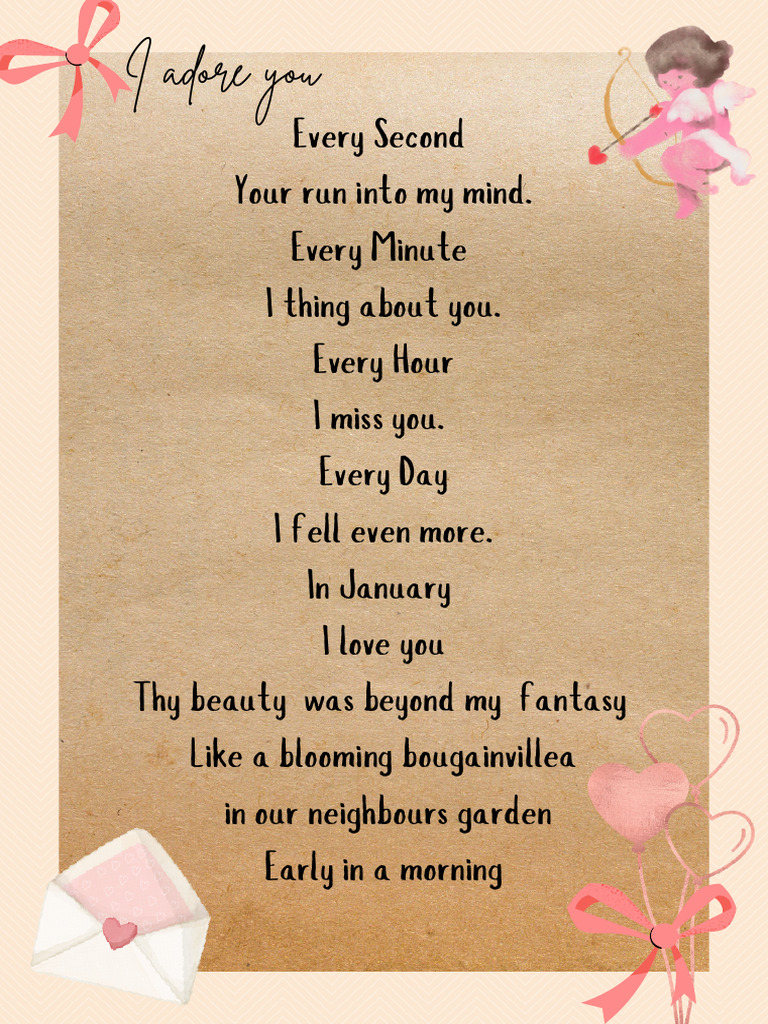 I adore you
Every Second
Your run into my mind.
Every Minute
I thing about you.
Every Hour
I miss you.
Every Day
I fell even more.
In January
I love you
Thy beauty was beyond my fantasy
Like a blooming bougainvillea
in our neighbours garden
Early in a morning